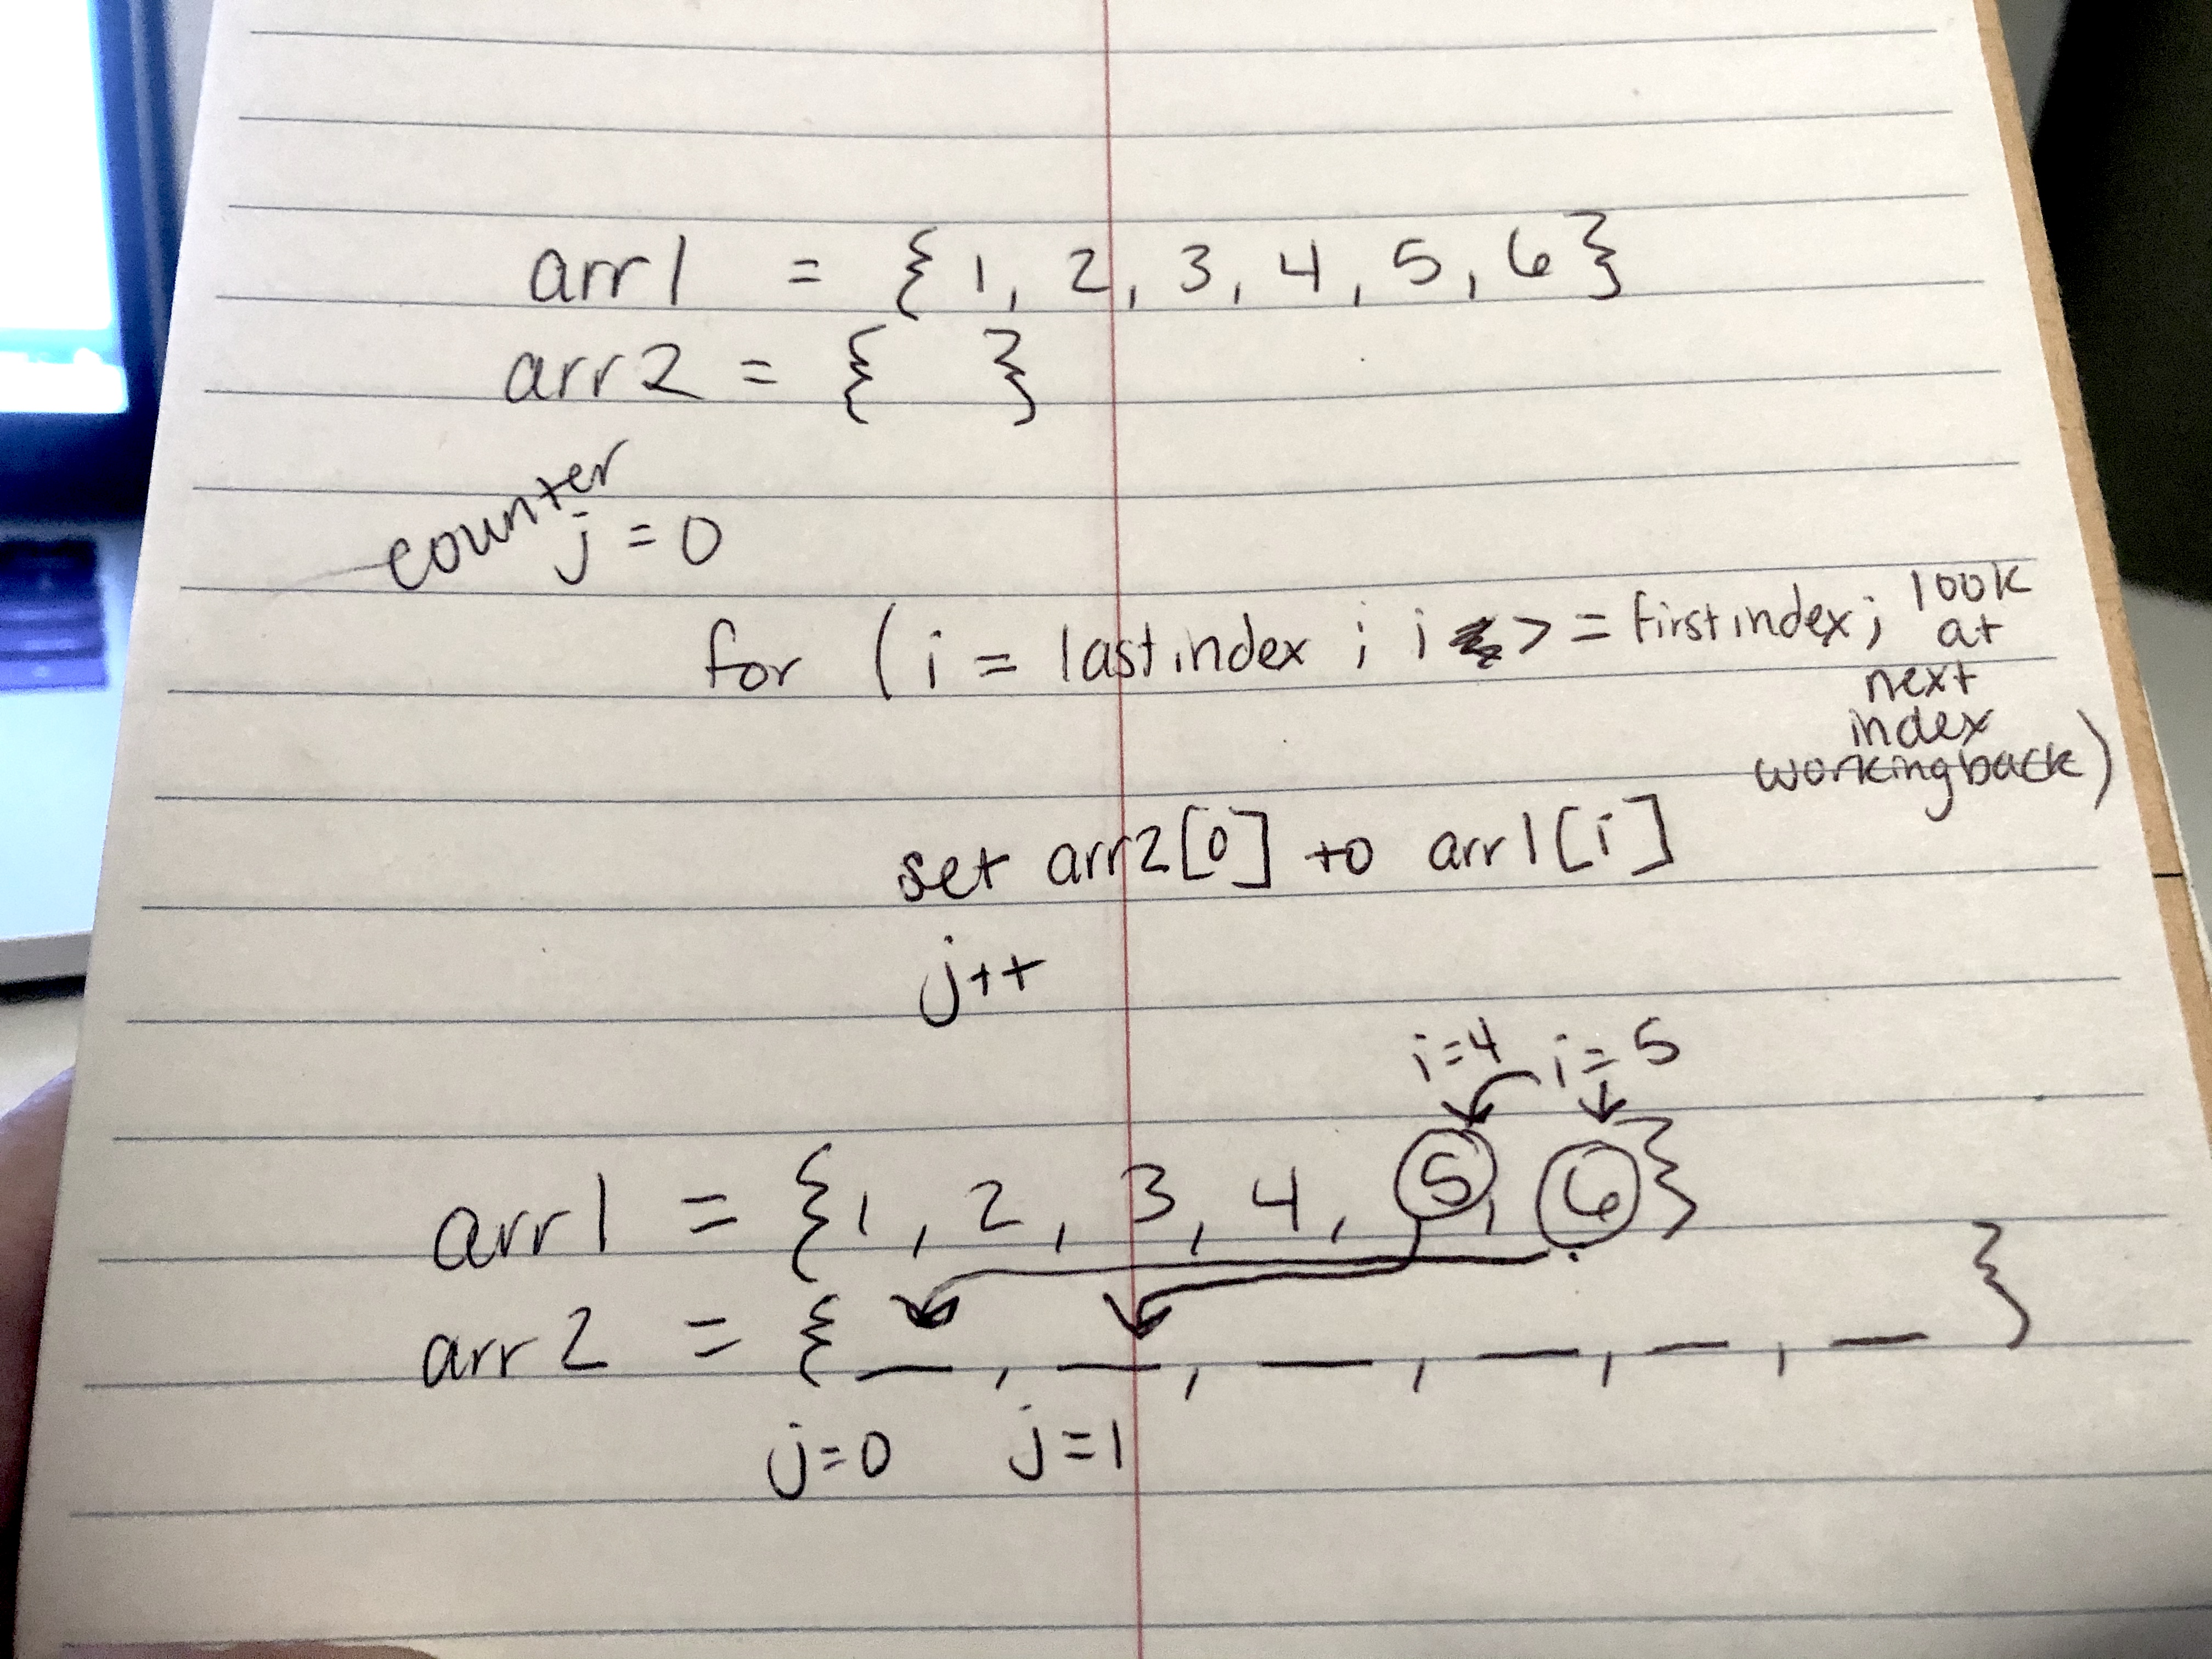 arr1 = {1, 2, 3, 4, 5, 6}
arr2 = { }
counter
j = 0
for (i = lastindex; i >= firstindex; look
at
next
index
working back)
set arr2[0] to arr1[i]
j++
i=4 i=5
arr1 = {1, 2, 3, 4, 5, 6}
arr2 = { _, _, _, _, _, _ }
j=0 j=1